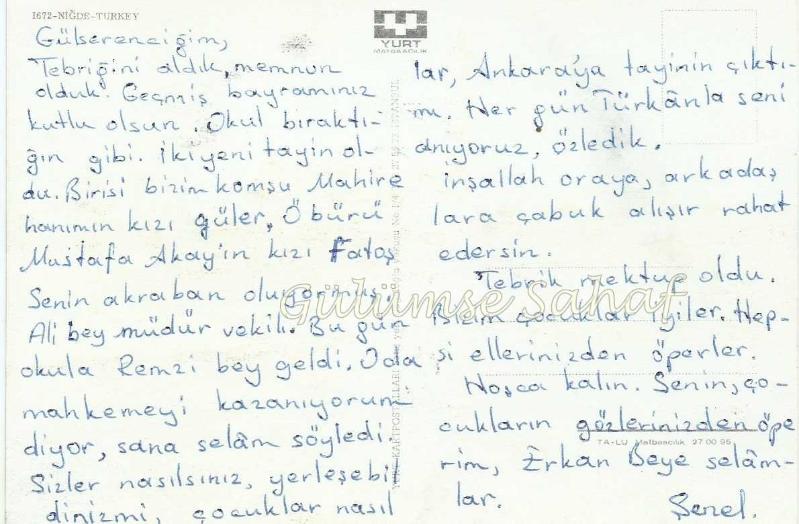 1672-NİĞDE-TURKEY
YURT
MATBAACILIK
Gülserenciğim,
Tebriğini aldık, memnun
olduk. Geçmiş bayramınız
kutlu olsun. Okul bıraktı-
ğın gibi. İki yeni tayin ol-
du. Birisi bizim komşu Mahire
hanımın kızı güler, Öbürü
Mustafa Akay'ın kızı Fatoş
Senin akraban oluyormuş.
Ali bey müdür vekili. Bu gün
okula Remzi bey geldi. Oda
mahkemeyi kazanıyorum
diyor, sana selâm söyledi.
Sizler nasılsınız, yerleşebil
dinizmi, çocuklar nasıl
lar, Ankara'ya tayinin çıktı-
mı. Her gün Türkânla seni
anıyoruz, özledik.
İnşallah oraya, arkadaş
lara çabuk alışır rahat
edersin.
Tebrik mektup oldu.
Bizim çocuklar iyiler. Hep-
si ellerinizden öperler.
Hoşca kalın. Senin, ço-
cukların gözlerinizden öpe
rim, Erkan Beye selâm-
lar.
Şenel.
Gülümse Sahaf
TA-LU Matbaacılık 27 00 95